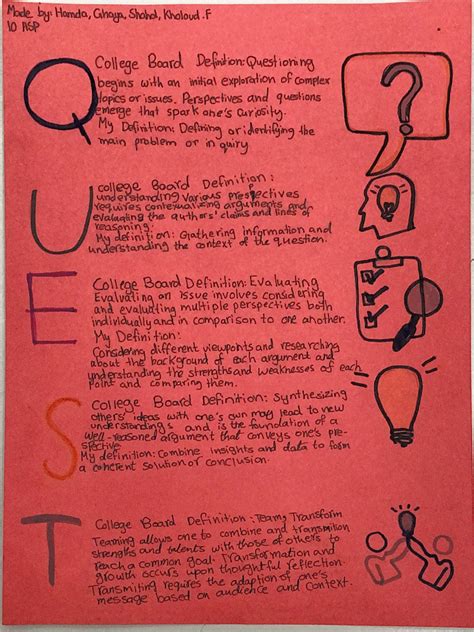 Made by: Hamda, Ghaya, Shahd, Kholoud .F
10 ASP
Q
College Board Definition: Questioning
begins with an initial exploration of complex
topics or issues. Perspectives and questions
emerge that spark one's curiosity.
My Definition: Defining or identifying the
main problem or in quiry.
?
U
college Board Definition:
understanding various prespectives
requires contexualizing arguments and
evaluating the authors' claims and lines of
reasoning.
My definition: Giathering information and
understanding the context of the question.
E
College Board Definition: Evaluating
Evaluating an issue involves considering
and evaluating multiple perspectives both
individually and in comparison to one another.
My Definition:
Considering different viewpoints and researching
about the background of each argument and
understanding the strengths and weaknesses of each
point and comparing them.
S
College Board Definition: Synthesizing
others' ideas with one's own may lead to new
understandings and is the foundation of a
well-reasoned argument that conveys one's pre-
spective
My definition: Combine insights and data to form
a coherent solution or conclusion.
T
College Board Definition: Team, Transform
Teaming allows one to combine and
strengths and talents with those of others to
reach a common goal. Transformation and
growth occurs upon thoughtful reflection.
Transmiting requires the adaption of one's
message based on audience and context.